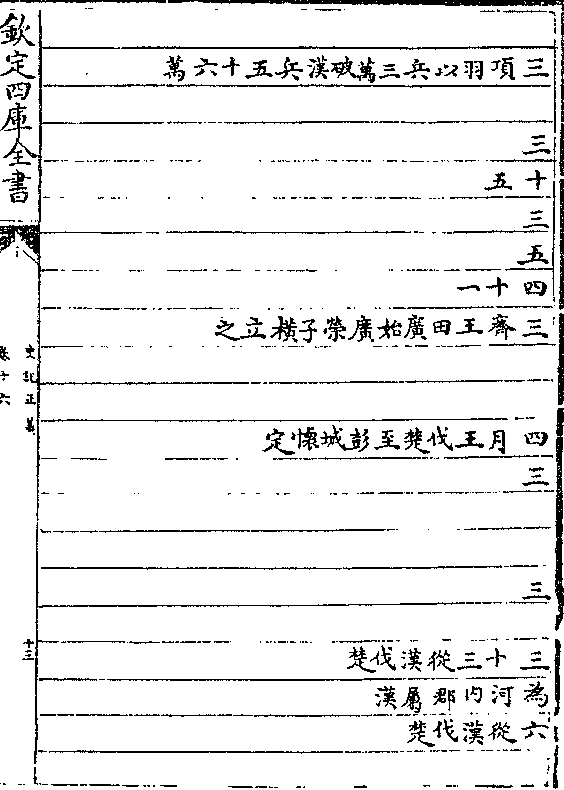 三項羽以兵三萬破漢兵五十六萬
三
十五
三
五
四十一
三齊王田廣始廣榮子橫立之
四月王伐楚至彭城懷定
三
三
三十三從漢伐楚
為河內郡屬漢
六從漢伐楚
欽定四庫全書
史記正義
卷十六
十三